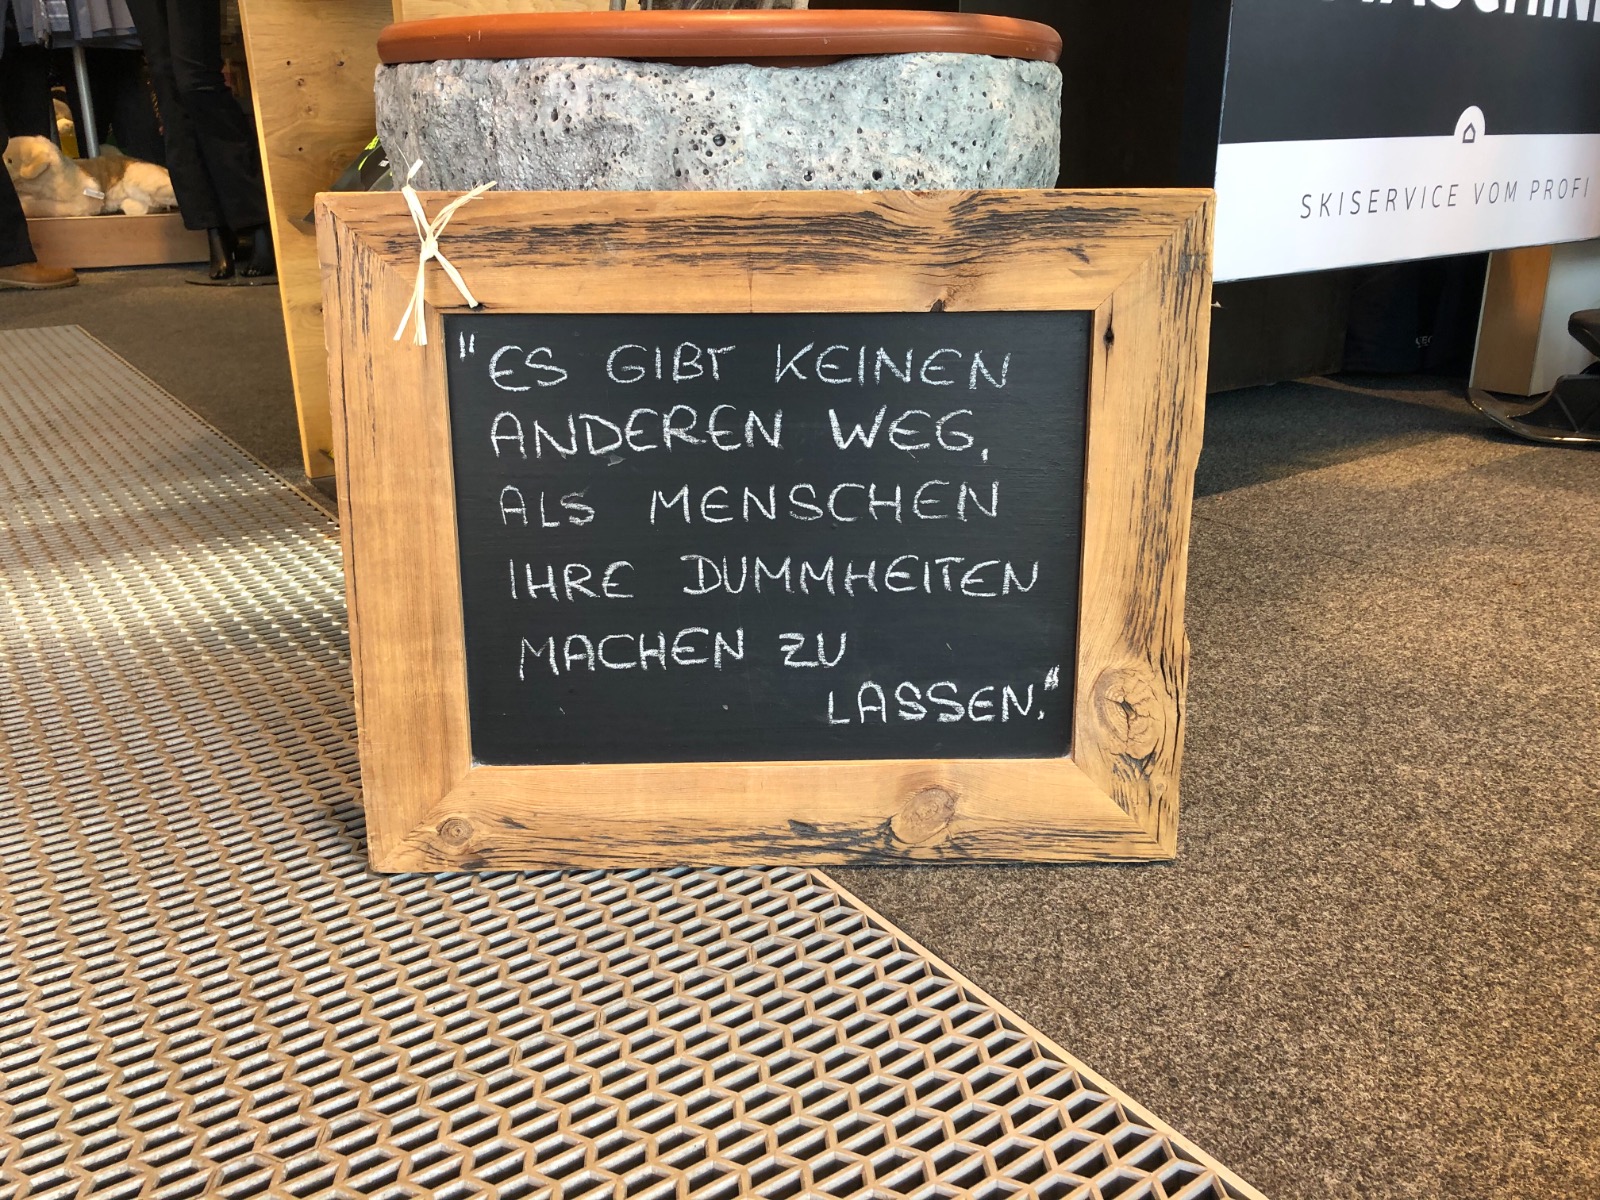 SKISERVICE VOM PROFI
"ES GIBT KEINEN
ANDEREN WEG,
ALS MENSCHEN
IHRE DUMMHEITEN
MACHEN ZU
LASSEN."